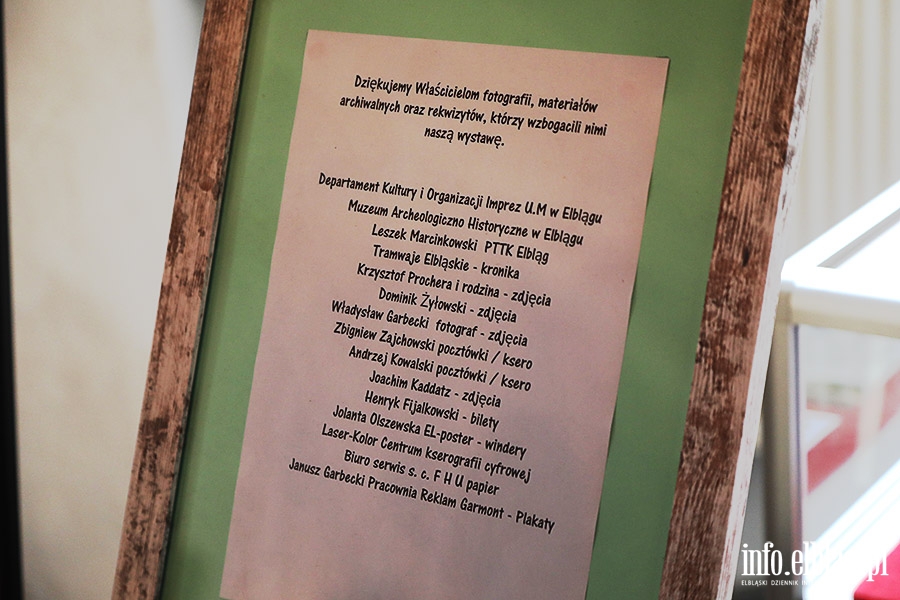 Dziękujemy Właścicielom fotografii, materiałów
archiwalnych oraz rekwizytów, którzy wzbogacili nimi
naszą wystawę.
Departament Kultury i Organizacji Imprez U.M w Elblągu
Muzeum Archeologiczno Historyczne w Elblągu
Leszek Marcinkowski PTTK Elbląg
Tramwaje Elbląskie - kronika
Krzysztof Prochera i rodzina - zdjęcia
Dominik Żyłowski - zdjęcia
Władysław Garbecki fotograf - zdjęcia
Zbigniew Zajchowski pocztówki / ksero
Andrzej Kowalski pocztówki / ksero
Joachim Kaddatz - zdjęcia
Henryk Fijałkowski - bilety
Jolanta Olszewska EL-poster - windery
Laser-Kolor Centrum kserografii cyfrowej
Biuro serwis s. c. F H U papier
Janusz Garbecki Pracownia Reklam Garmont - Plakaty
ELBLĄSKI DZIENNIK